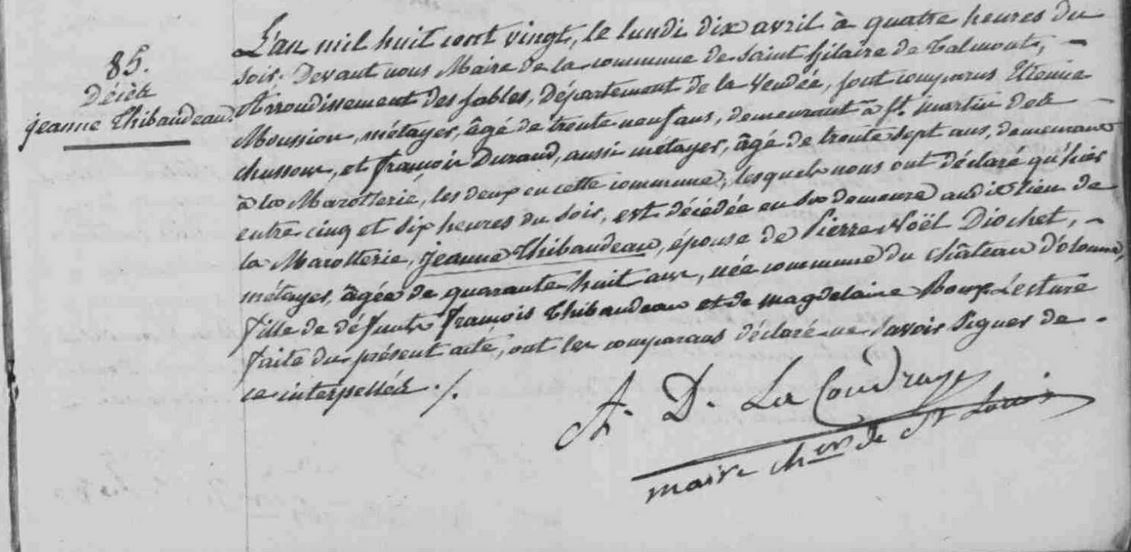 85.
Décès
jeanne Thibaudeau.
L'an mil huit cent vingt, le lundi dix avril à quatre heures du
soir. Devant nous Maire de la commune de Saint hilaire de Talmont,
Arrondissement des sables, Département de la Vendée, sont comparus Etienne
Moussion, métayer, âgé de trente neuf ans, demeurant à St. martin des
chusson, et françois Durand, aussi métayer, âgé de trente sept ans, demeurant
à la Marotterie, les deux en cette commune, lesquels nous ont déclaré qu'hier
entre cinq et six heures du soir, est décédée en sa demeure audit lieu de
la Marotterie, jeanne Thibaudeau, épouse de Pierre Noël Diochet,
métayer, âgée de quarante huit ans, née commune du château d'olonne,
fille de défunts françois Thibaudeau et de magdelaine Roux. Lecture
faite du présent acte, ont les comparans déclaré ne savoir signer de
ce interpellés ./.
A. D. La Coudraye
maire cher de St Louis